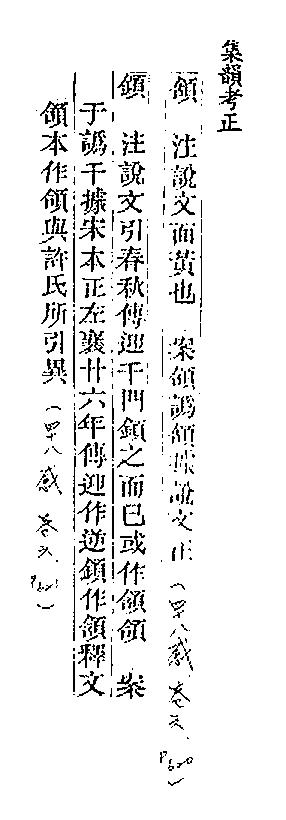 集韻考正
頷 注說文面黃也 案頷譌領據說文正（四十八感 卷六 P620）
顉 注說文引春秋傳迎于門顉之而已或作頷領 案
于譌干據宋本正左襄廿六年傳迎作逆顉作頷釋文
頷本作領與許氏所引異（四十八感 卷六 P620）